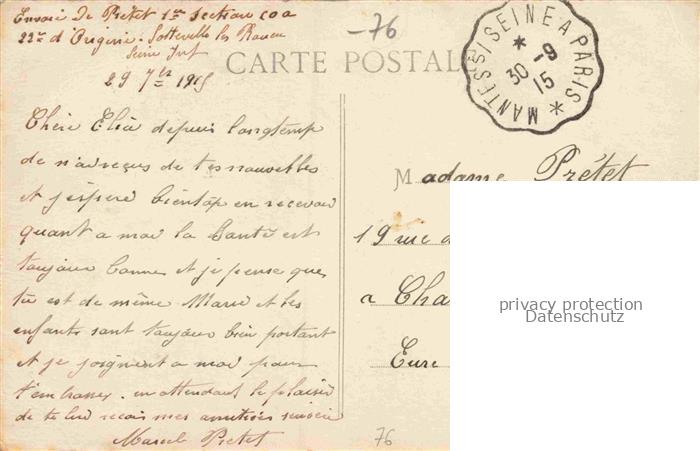 Envoi De Prétet 1re Section COA
22e d'Ougerie. Sotteville les Rouen
Seine Inf
29 7bre 1915
-76
CARTE POSTALE
MANTES S/ SEINE A PARIS
30 -9
15
Chère Elia depuis longtemp
de n'ai reçus de tes nouvelles
et j'espère bientop en recevoir
quant a moi la Santé est
toujour bonne et je pense que
tu est de même Marie et les
enfants sont toujour bien portant
et je joignent a moi pour
t'embrasser. en attendant le plaisir
de te lire reçois mes amitiées sincère
Marcel Pretet
Madame Prétet
19 rue d
a Cha
Eure
privacy protection
Datenschutz
76